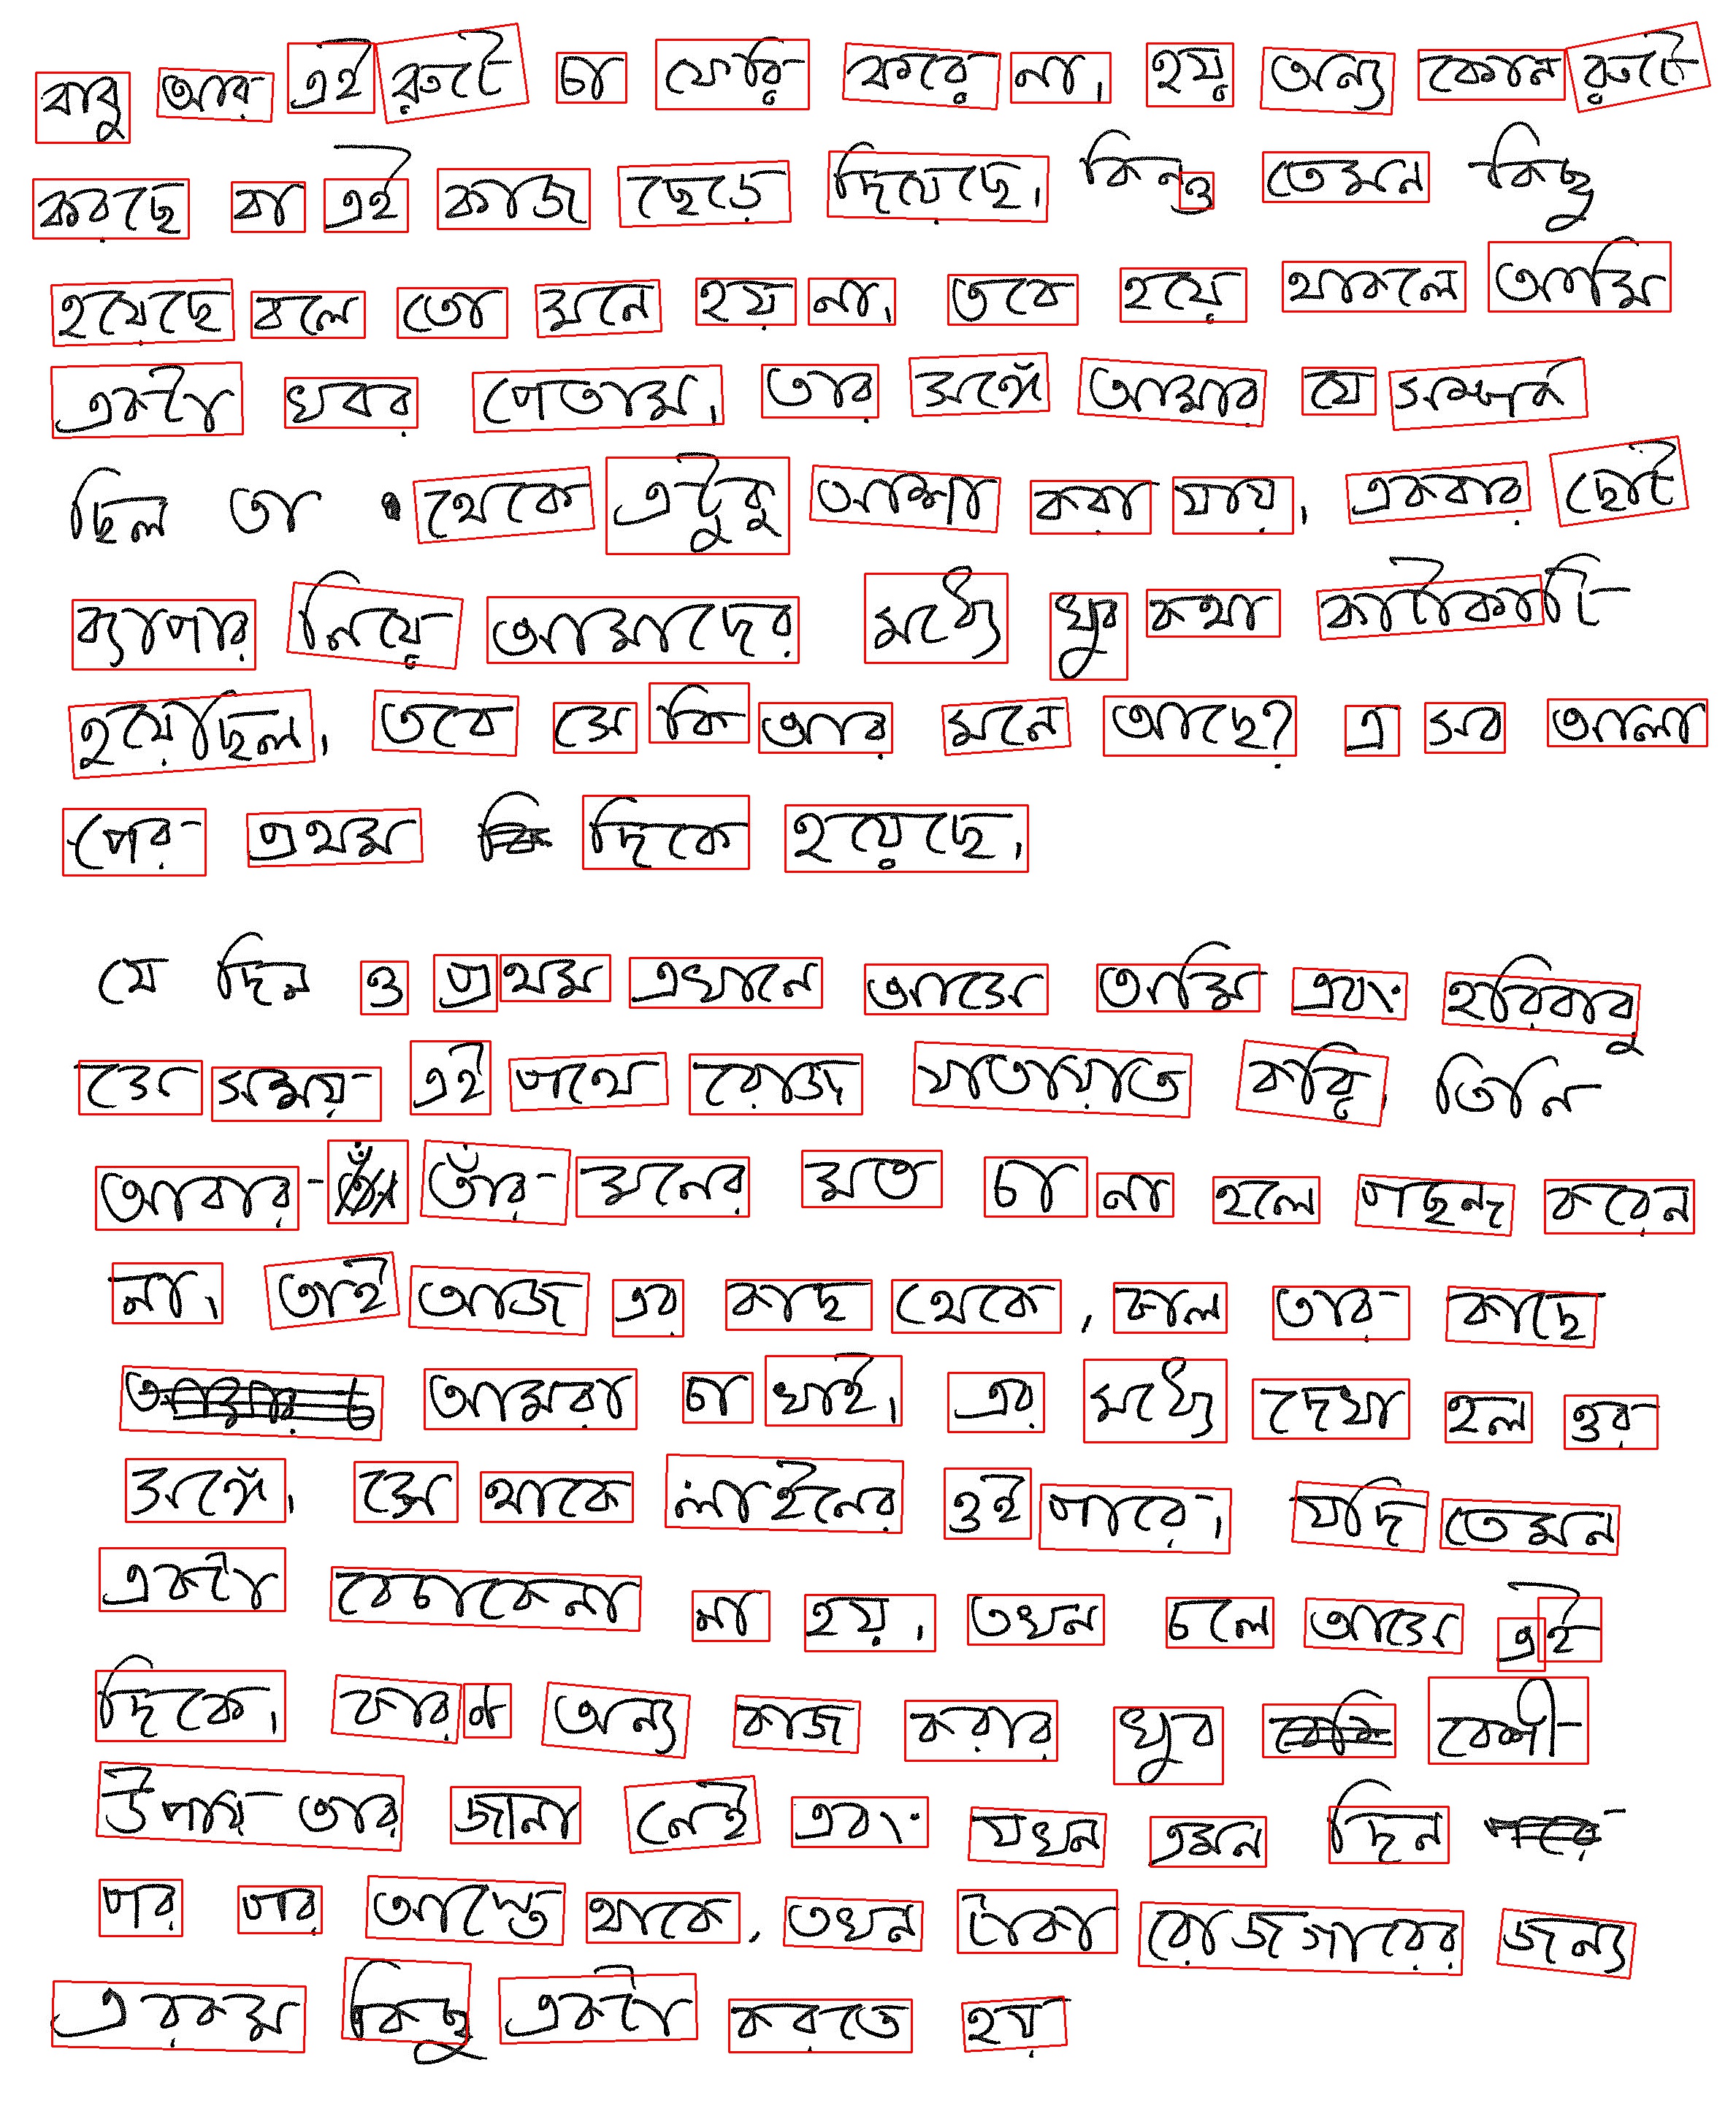 বাবু আর এই রুটে চা ফেরি করে না। হয় অন্য কোন রুটে
করছে বা এই কাজ ছেড়ে দিয়েছে। কিন্তু তেমন কিছু
হয়েছে বলে তো মনে হয় না। তবে হয়ে থাকলে আমি
একটা খবর পেতাম। তার সঙ্গে আমার যে সম্পর্ক
ছিল তা থেকে এটুকু আশা করা যায়। একবার ছোট
ব্যাপার নিয়ে আমাদের মধ্যে খুব কথা কাটাকাটি
হয়েছিল। তবে সে কি আর মনে আছে? এ সব আলা
পের প্রথম দিকে হয়েছে।
যে দিন ও প্রথম এখানে আসে আমি এবং হরিবাবু
সে সময় এই পথে রোজ যাতায়াত করি। তিনি
আবার তাঁর মনের মত চা না হলে পছন্দ করেন
না। তাই আজ এর কাছ থেকে, কাল তার কাছে
আমরা চা খাই। এর মধ্যে দেখা হল ওর
সঙ্গে। সে থাকে লাইনের ওই পারে। যদি তেমন
একটা বেচাকেনা না হয়। তখন চলে আসে এই
দিকে। কারণ অন্য কাজ করার খুব বেশী
উপায় তার জানা নেই এবং যখন এমন দিন
পর পর আস্তে থাকে, তখন টাকা রোজগারের জন্য
এ রকম কিছু একটা করতে হয়